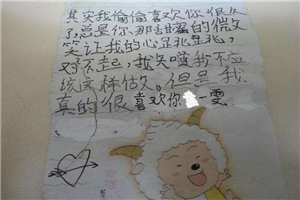 其实我偷偷喜欢你很久
了总是你那甜甜的微
笑让我的心
对不起,我知道我不应
该这样做。但是我
真的很喜欢你 雯